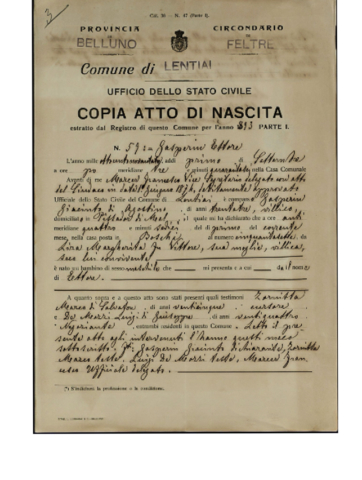 3
Cat. 10 - N. 47 (Parte I).
PROVINCIA CIRCONDARIO
BELLUNO FELTRE
Comune di LENTIAI
UFFICIO DELLO STATO CIVILE
COPIA ATTO DI NASCITA
estratto dal Registro di questo Comune per l'anno 893 PARTE I.
N. 59 Gasperin Ettore
L'anno addì primo di Settembre
a ore meridiane tre e minuti quaranta nella Casa Comunale
Avanti di me Marcer Francesco Vice Segretario delegato con atto
del Sindaco in data Giugno 1874 debitamente approvato
Ufficiale dello Stato Civile del Comune di Lentiai è comparso Gasperin
Giacinto di Agostino di anni trentatre, villico
domiciliato a Villa di Mel, il quale mi ha dichiarato che a ore anti
meridiane quattro e minuti del giorno del corrente
mese, nella casa posta in Boschi al numero cinquantasette, da
Margherita fu Vittore, sua moglie, villica,
seco lui convivente
è nato un bambino di sesso maschile che mi presenta e a cui dà il nome
di Ettore.
A quanto sopra e a questo atto sono stati presenti quali testimoni Zornitta
Marco di Salvatore di anni venticinque cursore
e De Marzi Luigi di Giuseppe di anni ventiquattro
Negoziante entrambi residenti in questo Comune. Letto il pre
sente atto agli intervenuti l'hanno questi meco
sottoscritto. F. Gasperin Giacinto dichiarante, Zornitta
Marco teste. Luigi De Marzi teste. Marcer Fran
cesco Ufficiale delegato.
(*) S'indichino la professione o la condizione.